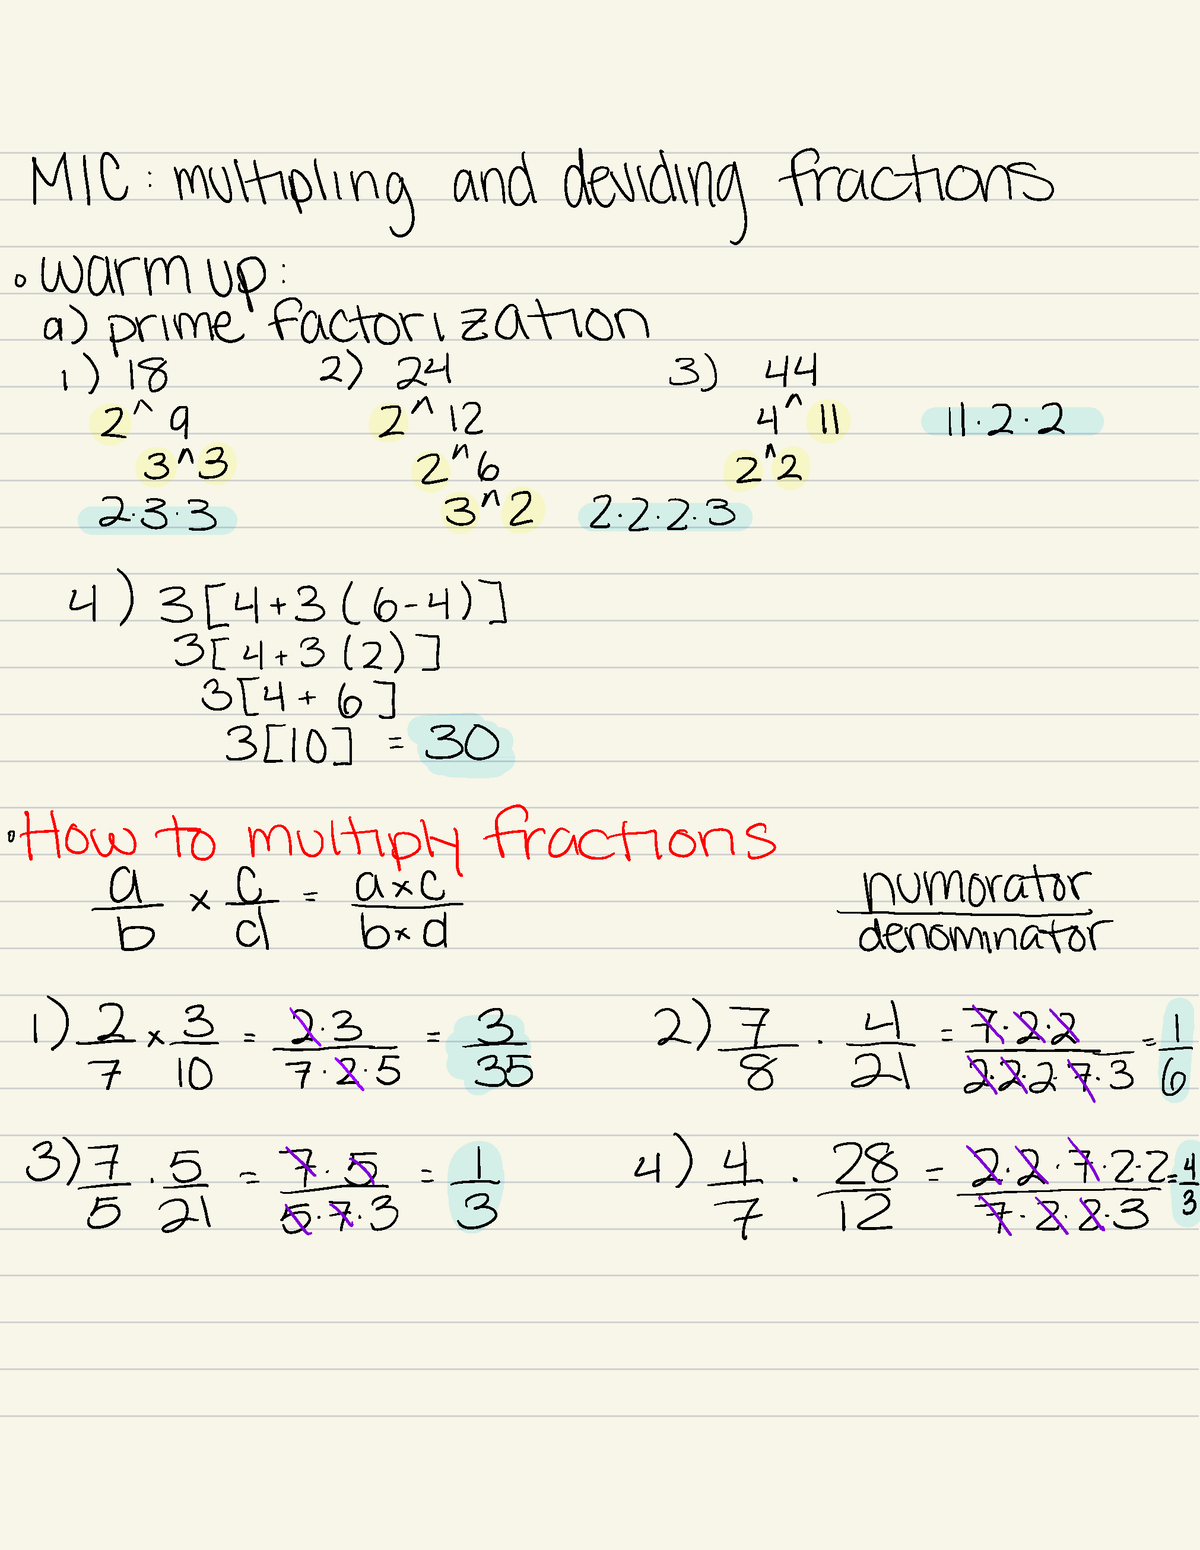 MIC: multipling and deviding fractions
• warm up:
a) prime factorization
1) 18 2) 24 3) 44
2^9 2^12 4^11 11·2·2
3^3 2^6 2^2
2·3·3 3^2 2·2·2·3
4) 3[4+3(6-4)]
3[4+3(2)]
3[4+6]
3[10] = 30
• How to multiply fractions
a/b × c/d = a×c/b×d numorator/denominator
1) 2/7 × 3/10 = 2·3/7·2·5 = 3/35 2) 7/8 · 4/21 = 7·2·2/2·2·2·7·3 = 1/6
3) 7/5 · 5/21 = 7·5/5·7·3 = 1/3 4) 4/7 · 28/12 = 2·2·7·2·2/7·2·2·3 = 4/3